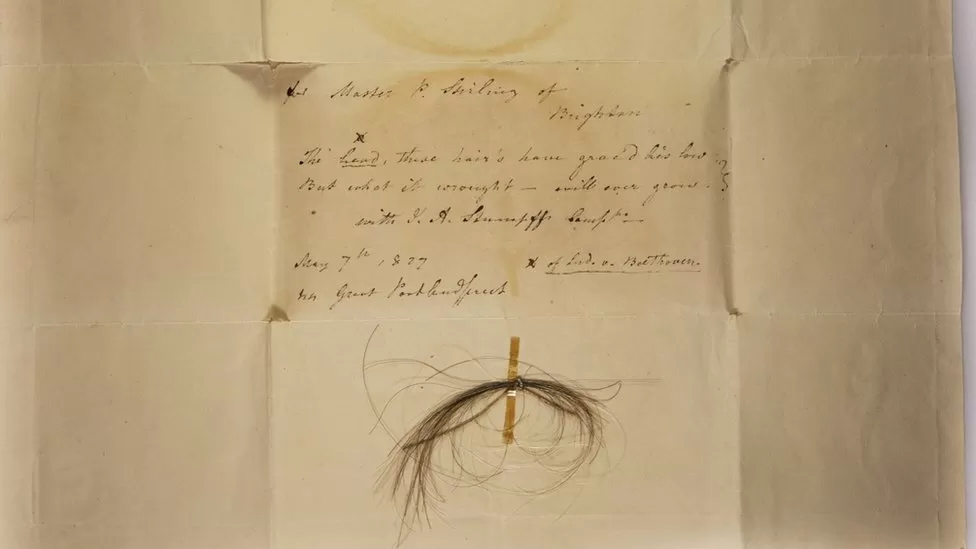 for Master P. Stirling of
Brighton
x
The head, these hair's have grac'd lies low
But what it wrought – will ever grow.
with J. A. Stumpff's Compts.
May 7th, 1827
x of Lud. v. Beethoven.
Great Portland Street